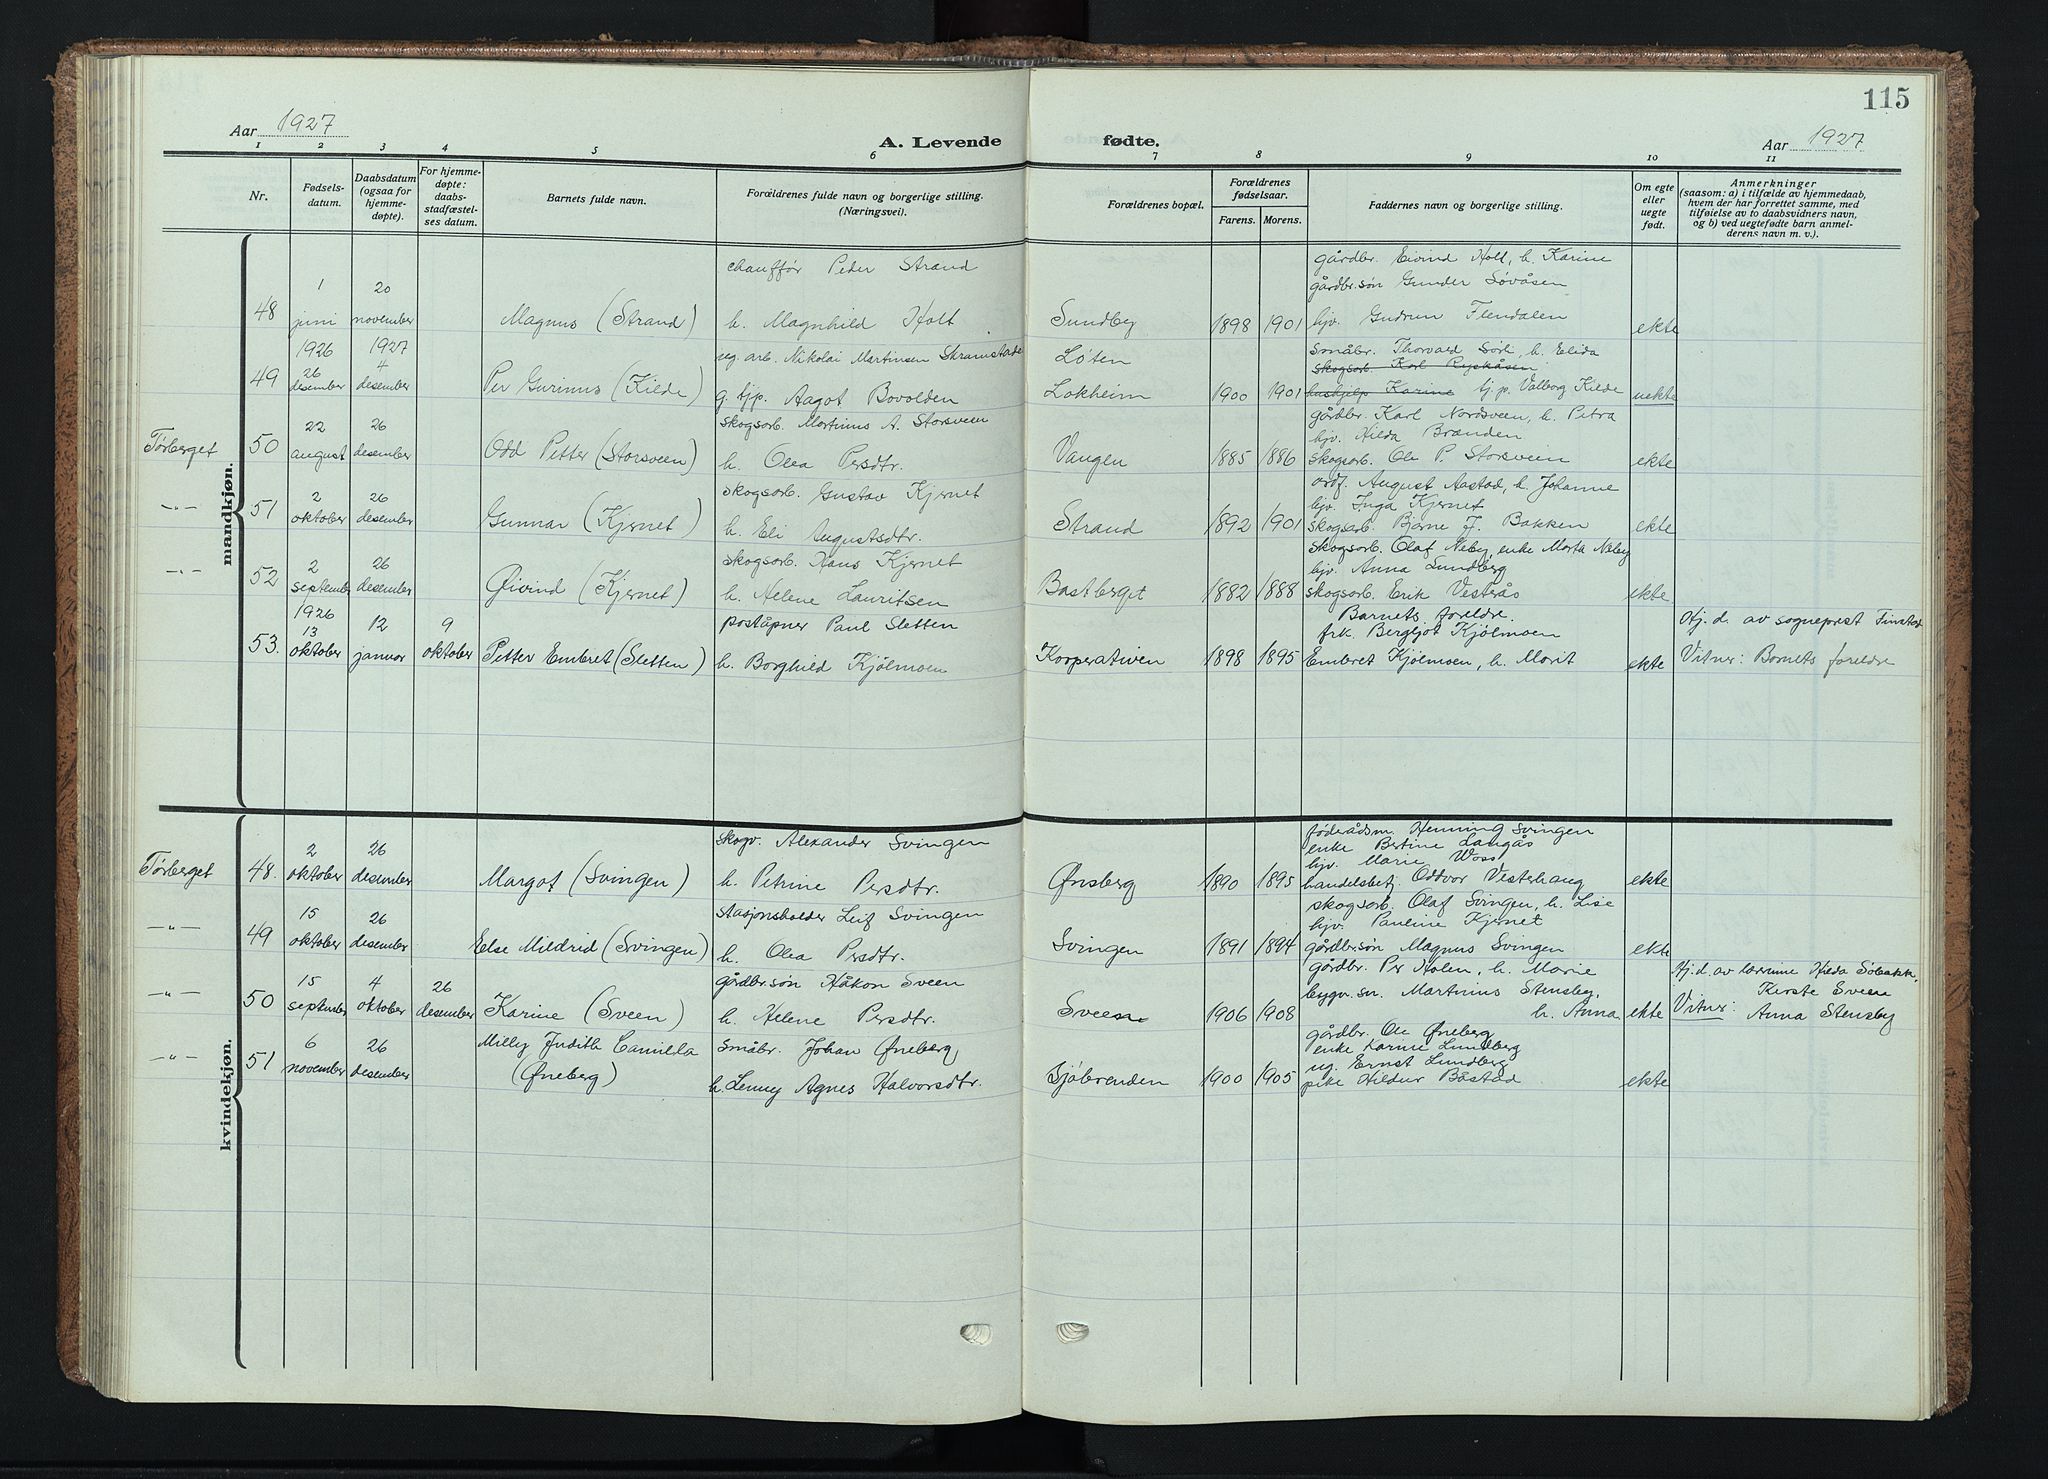 115
Aar 1927
A. Levende fødte.
Aar 1927
1 2 3 4 5 6 7 8 9 10 11
Nr.
Fødsels-
datum.
Daabsdatum
(ogsaa for
hjemme-
døpte).
For hjemme-
døpte:
daabs-
stadfæstel-
ses datum.
Barnets fulde navn.
Forældrenes fulde navn og borgerlige stilling.
(Næringsvei).
Forældrenes bopæl.
Forældrenes
fødselsaar.
Farens. Morens.
Faddernes navn og borgerlige stilling.
Om egte
eller
uegte
født.
Anmerkninger
(saasom: a) i tilfælde av hjemmedaab,
hvem der har forrettet samme, med
tilføielse av to daabsvidners navn,
og b) ved uegtefødte barn anmel-
derens navn m. v.).
mandkjøn.
chauffør Peder Strand
gårdbr. Eivind Holt, h. Karine
1 20
gårdbr.søn Gunder Søvåsen
48 juni november Magnus (Strand) h. Magnhild Holt Sundby 1898 1901 hjv. Gudrun Flendalen ekte
1926 1927
ug. arb. Nikolai Martinsen Skramstade Løten
småbr. Thorvald Sørli, h. Elida
26 4
skogsarb. Karl Ryskåsen
49 desember desember Per Gurinus (Kilde) g. tjp. Aagot Bovolden Lokheim 1900 1901 hushjelp Karine tj.p. Valborg Kilde uekte
22 26
skogsarb. Martinus A. Storsveen
gårdbr. Karl Nordsveen, h. Petra
hjv. Hilda Brænden
Tørberget 50 august desember Odd Petter (Storsveen) h. Olea Persdtr. Vangen 1885 1886 skogsarb. Ole P. Storsveen ekte
2 26
skogsarb. Gustav Kjernet
ordf. August Aastad, h. Johanne
hjv. Inga Kjernet
-"- 51 oktober desember Gunnar (Kjernet) h. Eli Augustsdtr. Strand 1892 1901 skogsarb. Bjarne J. Bakken ekte
2 26
skogsarb. Hans Kjernet
skogsarb. Olaf Neby, enke Marta Neby
hjv. Anna Lundberg
-"- 52 september desember Øivind (Kjernet) h. Helene Lauritsen Bastberget 1882 1888 skogsarb. Erik Vesterås ekte
1926
13 12 9
poståpner Paul Sletten
Barnets foreldre.
frk. Bergljot Kjølmoen
Hj. d. av sogneprest Finstad
53. oktober januar oktober Petter Embret (Sletten) h. Borghild Kjølmoen Kooperativen 1898 1895 Embret Kjølmoen, h. Marit ekte Vitner: Barnets foreldre
kvindekjøn.
skogv. Alexander Svingen
føderådsm. Henning Svingen
enke Bertine Langås
2 26
hjv. Marie Woss
Tørberget 48. oktober desember Margot (Svingen) h. Petrine Persdtr. Ønsberg 1890 1895 handelsbetj. Oddvar Vesterhaug ekte
15 26
stasjonsholder Leif Svingen
skogsarb. Olaf Svingen, h. Lise
hjv. Pauline Kjernet
-"- 49 oktober desember Else Mildrid (Svingen) h. Olea Persdtr. Svingen 1891 1894 gårdbr.søn Magnus Svingen ekte
15 4 26
gårdbr.søn Håkon Sveen
gårdbr. Per Holen, h. Marie
Hj. d. av lærerinne Hilda Søbakk.
bygn. sn. Martinius Stensby,
Kirste Sveen
-"- 50 september oktober desember Karine (Sveen) h. Helene Persdtr. Sveen 1906 1908 h. Anna ekte Vitner: Anna Stensby
6 26
Milly Judith Camilla
småbr. Johan Øneberg
gårdbr. Ole Øneberg
enke Karine Lundberg
ug. Ernst Lundberg
-"- 51 november desember (Øneberg) h. Lenny Agnes Halvorsdtr. Sjøbrenden 1900 1905 pike Hildur Båstad ekte